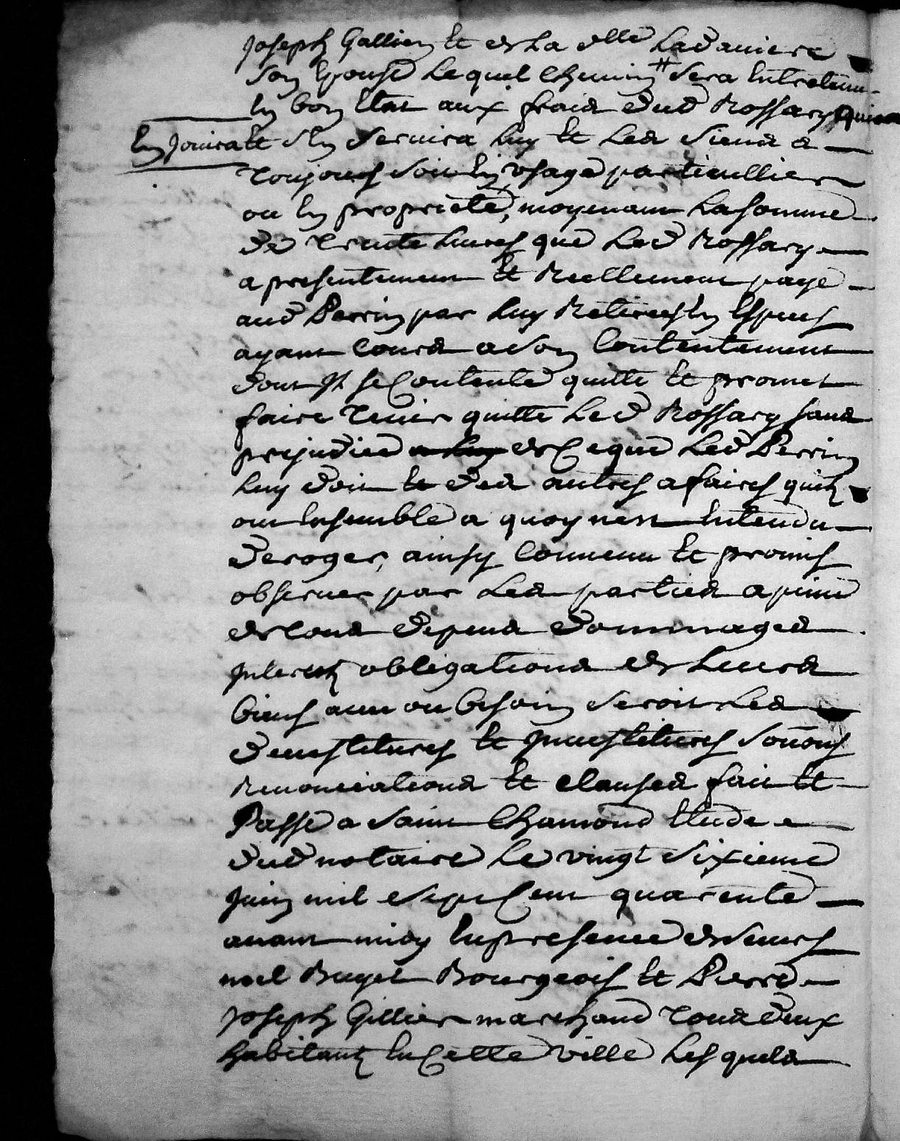 Joseph Gallien et de la dlle Ladaviere
Son Epouse Lequel Chemin # sera Entretenu
En bon Etat aux fraid dud Rossary qui
En Jouira et S'En Servira Luy et Led Siend a
Toujours Soit En Usage particullier
ou En propriete, moyenant La Somme
De Trente Livres que Led Rossary
a presentement et Reellement paye
aud Perrin par Luy Retirees En Especes
ayant Cours a Son Contentement
dont Jl Se Contente quitte et promet
faire Tenir quitte Led Rossary Sans
prejudice de Ce que Led Perrin
Luy Doit et Des autres afaires quilz
ont Ensemble a quoy n'est Entendu
Deroger, ainsy Convenu et promis
observer par Les parties a peine
de tous Depens Dommages
Jnterestz obligations de Leurs
biens aux ou besoin Seroit Les
Devestitures et Jnvestitures Soumis
Renonciations et Clauses fait et
Passé a Saint Chamond Etude
Dud notaire Le vingt Sixieme
Juin mil Sept Cent quarente
avant midy En presence de Sieurs
noel Buyet Bourgeois et Pierre
Joseph Gillier marchand Tous Deux
habitantz En Cette ville Lesquels